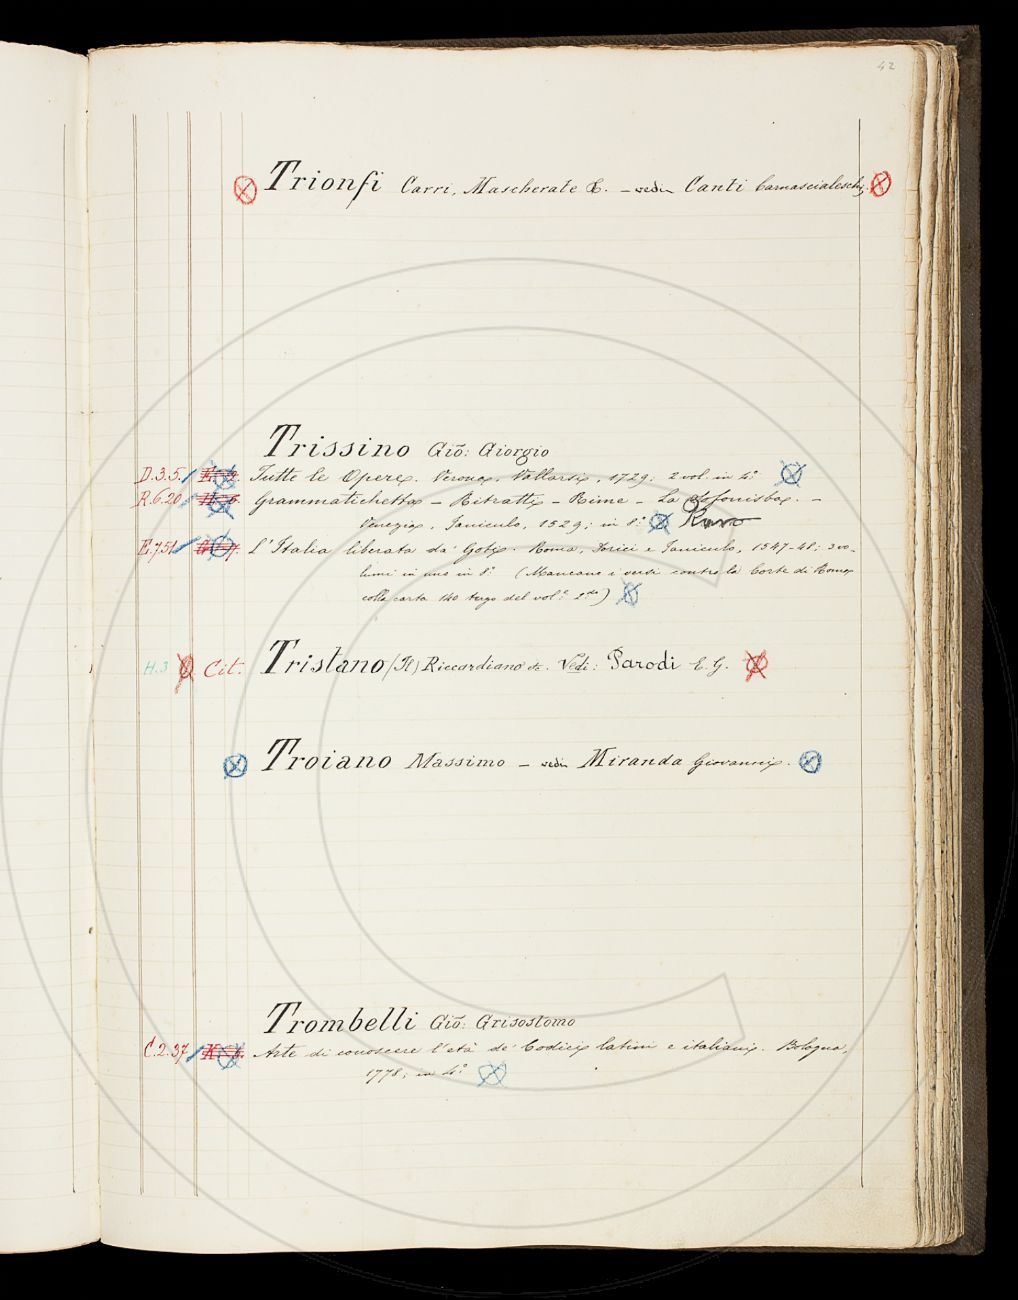 42
Trionfi Carri, Mascherate &. – vedi Canti Carnascialeschi.
Trissino Gio: Giorgio
D.3.5. Tutte le Opere. Verona, Vallarsi, 1729; 2 vol. in 4.°
R.6.20 Grammatichetta – Ritratti – Rime – La Sofonisba. –
Venezia, Janiculo, 1529; in 8.° Raro
E.7.51 L'Italia liberata da' Goti. Roma, Dorici e Janiculo, 1547-48; 3 vo-
lumi in uno in 8.° (Mancano i versi contro la Corte di Roma
colla carta 140 tergo del vol.° 2.do)
H.3 Cit. Tristano (Il) Riccardiano &. Vedi: Parodi E. G.
Troiano Massimo – vedi Miranda Giovanni.
Trombelli Gio: Grisostomo
C.2.37 Arte di conoscere l'età de' Codici latini e italiani. Bologna,
1778, in 4.°